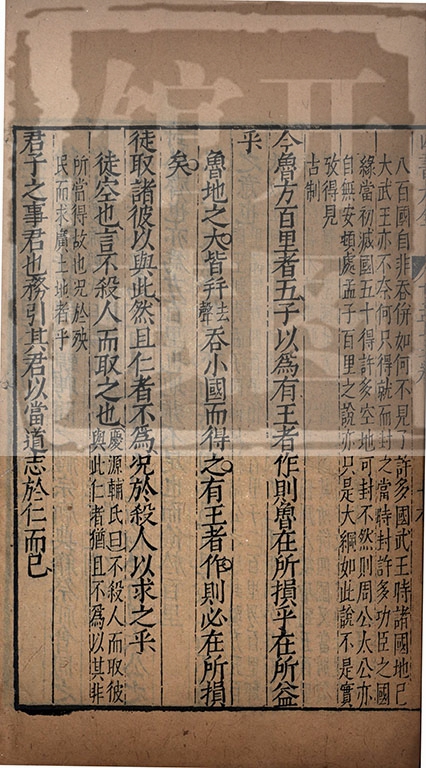 八百國自非吞併如何不見了許多國武王時諸國地已
大武王亦不奈何只得就而封之當時封許多功臣之國
緣當初滅國五十得許多空地可封不然則周公太公亦
自無安頓處孟子百里之說亦只是大綱如此說不是實
攷得見
古制
今魯方百里者五子以為有王者作則魯在所損乎在所益
乎
魯地之大皆并去聲吞小國而得之有王者作則必在所損
矣
徒取諸彼以與此然且仁者不為况於殺人以求之乎
徒空也言不殺人而取之也慶源輔氏曰不殺人而取彼
與此仁者猶且不為以其非
所當得故也况於殃
民而求廣土地者乎
君子之事君也務引其君以當道志於仁而已